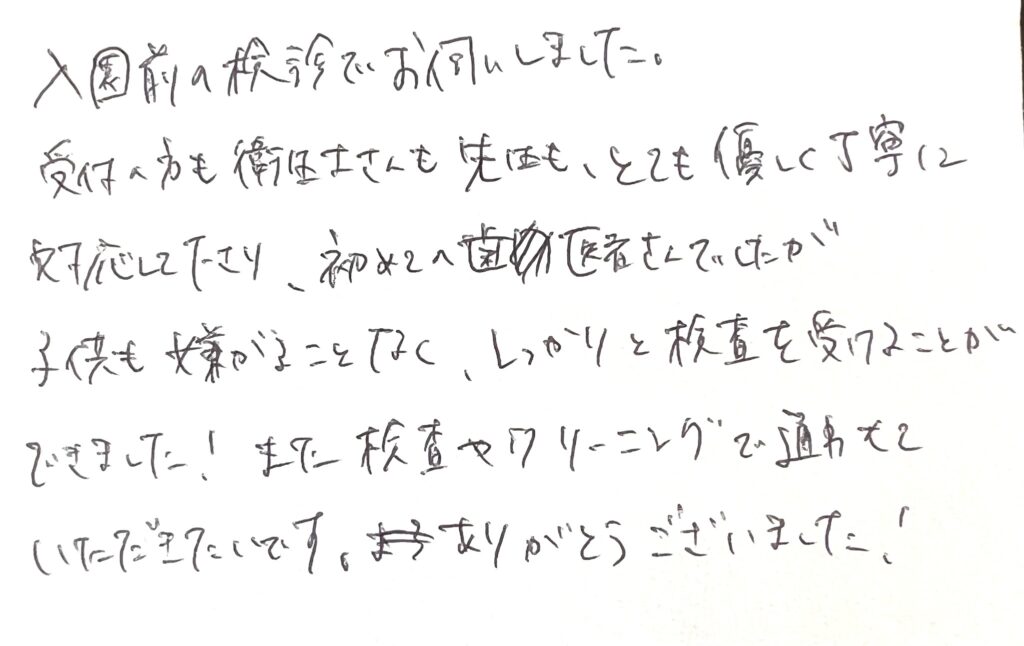 入園前の検診でお伺いしました。
受付の方も衛生士さんも先生も、とても優しく丁寧に
対応して下さり、初めての歯医者さんでしたが
子供も嫌がることなく、しっかりと検査を受けることが
できました！また検査やクリーニングで通わせて
いただきたいです。ありがとうございました！